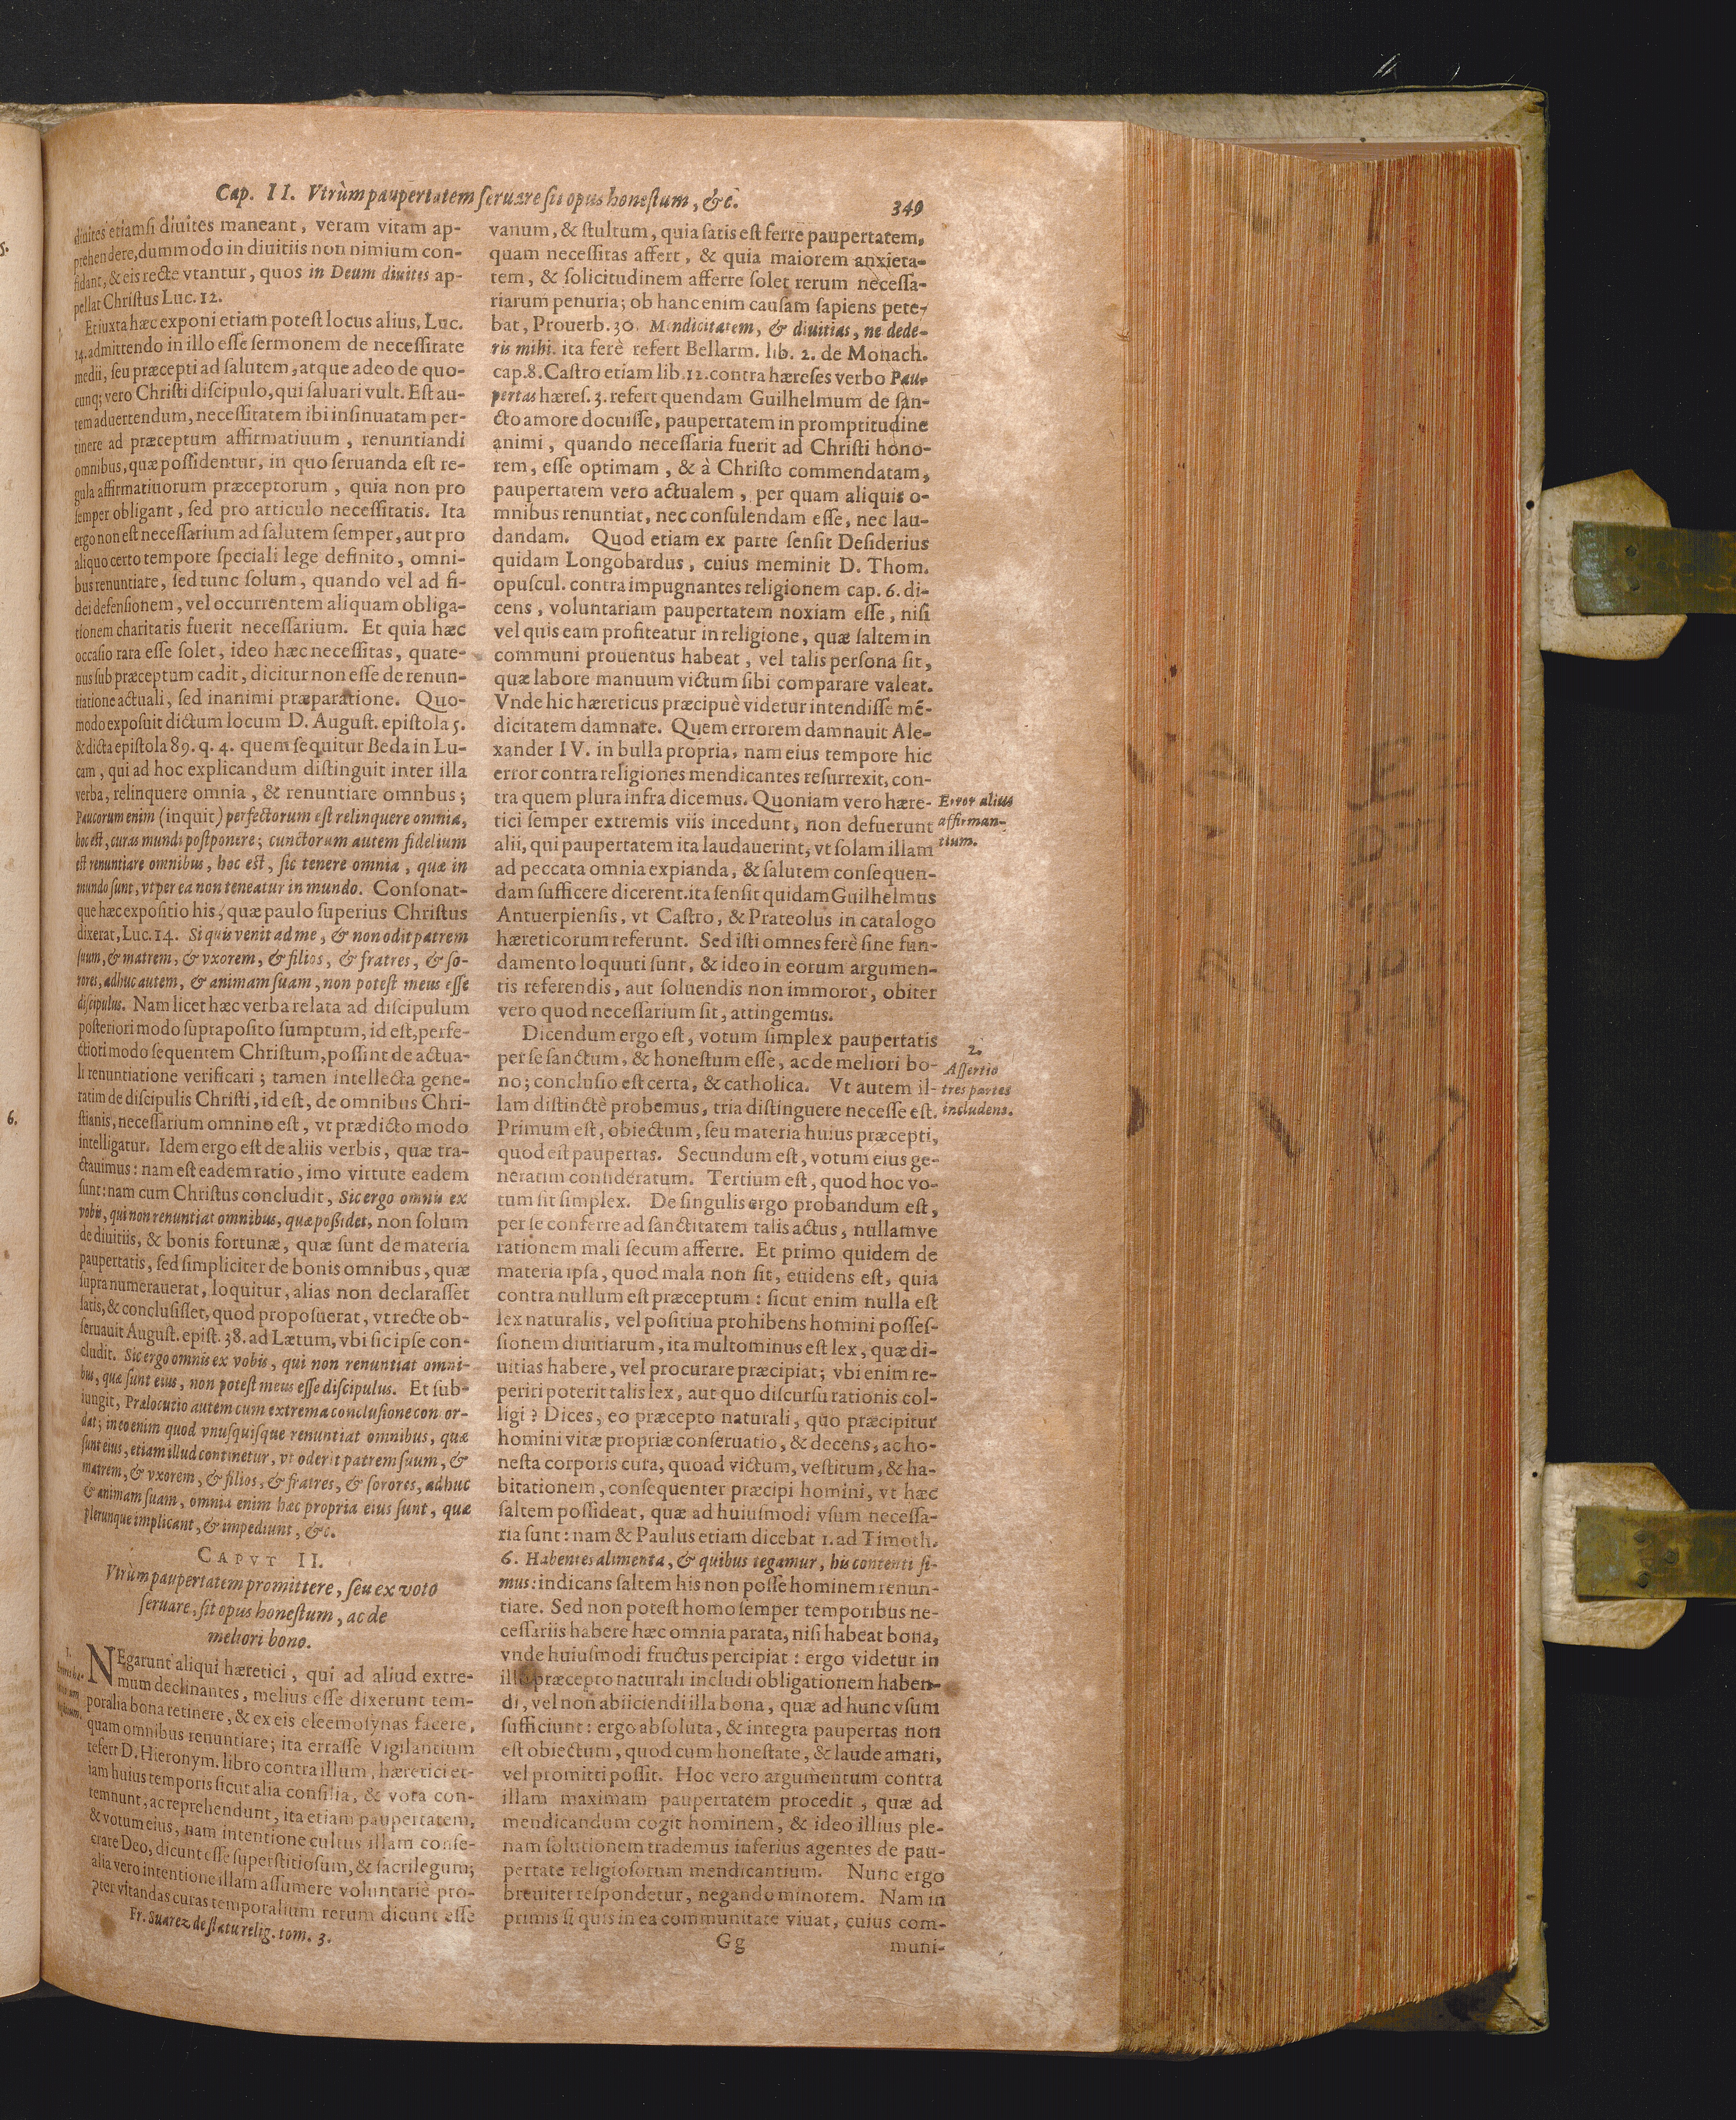 Cap. II. Vtrùm paupertatem seruare sit opus honestum, &c.
349
diuites etiamsi diuites maneant, veram vitam ap-
prehendere, dummodo in diuitiis non nimium con-
fidant, & eis recte vtantur, quos in Deum diuites ap-
pellat Christus Luc. 12.
Et iuxta hæc exponi etiam potest locus alius, Luc.
14. admittendo in illo esse sermonem de necessitate
medii, seu præcepti ad salutem, atque adeo de quo-
cunq; vero Christi discipulo, qui saluari vult. Est au-
tem aduertendum, necessitatem ibi insinuatam per-
tinere ad præceptum affirmatiuum, renuntiandi
omnibus, quæ possidentur, in quo seruanda est re-
gula affirmatiuorum præceptorum, quia non pro
semper obligant, sed pro articulo necessitatis. Ita
ergo non est necessarium ad salutem semper, aut pro
aliquo certo tempore speciali lege definito, omni-
bus renuntiare, sed tunc solum, quando vel ad fi-
dei defensionem, vel occurrentem aliquam obliga-
tionem charitatis fuerit necessarium. Et quia hæc
occasio rara esse solet, ideo hæc necessitas, quate-
nus sub præceptum cadit, dicitur non esse de renun-
tiatione actuali, sed in animi præparatione. Quo-
modo exposuit dictum locum D. August. epistola 5.
& dicta epistola 89. q. 4. quem sequitur Beda in Lu-
cam, qui ad hoc explicandum distinguit inter illa
verba, relinquere omnia, & renuntiare omnbus;
Paucorum enim (inquit) perfectorum est relinquere omnia,
hoc est, curas mundi postponere; cunctorum autem fidelium
est renuntiare omnibus, hoc est, sic tenere omnia, quæ in
mundo sunt, vt per ea non teneatur in mundo. Consonat-
que hæc expositio his, quæ paulo superius Christus
dixerat, Luc. 14. Si quis venit ad me, & non odit patrem
suum, & matrem, & vxorem, & filios, & fratres, & so-
rores, adhuc autem, & animam suam, non potest meus esse
discipulus. Nam licet hæc verba relata ad discipulum
posteriori modo supraposito sumptum, id est, perfe-
ctiori modo sequentem Christum, possint de actua-
li renuntiatione verificari; tamen intellecta gene-
ratim de discipulis Christi, id est, de omnibus Chri-
stianis, necessarium omnino est, vt prædicto modo
intelligatur. Idem ergo est de aliis verbis, quæ tra-
ctauimus: nam est eadem ratio, imo virtute eadem
sunt: nam cum Christus concludit, Sic ergo omnis ex
vobis, qui non renuntiat omnibus, quæ possidet, non solum
de diuitiis, & bonis fortunæ, quæ sunt de materia
paupertatis, sed simpliciter de bonis omnibus, quæ
supra numerauerat, loquitur, alias non declarasset
satis, & conclusisset, quod proposuerat, vt recte ob-
seruauit August. epist. 38. ad Lætum, vbi sic ipse con-
cludit. Sic ergo omnis ex vobis, qui non renuntiat omni-
bus, quæ sunt eius, non potest meus esse discipulus. Et sub-
iungit, Prælocutio autem cum extrema conclusione concor-
dat; in eo enim quod vnusquisque renuntiat omnibus, quæ
sunt eius, etiam illud continetur, vt oderit patrem suum, &
matrem, & vxorem, & filios, & fratres, & sorores, adhuc
& animam suam, omnia enim hæc propria eius sunt, quæ
plerunque implicant, & impediunt, &c.
CAPVT II.
Vtrùm paupertatem promittere, seu ex voto
seruare, sit opus honestum, ac de
meliori bono.
1.
NEgarunt aliqui hæretici, qui ad aliud extre-
mum declinantes, melius esse dixerunt tem-
poralia bona retinere, & ex eis eleemosynas facere,
quam omnibus renuntiare; ita errasse Vigilantium
refert D. Hieronym. libro contra illum, hæretici et-
iam huius temporis sicut alia consilia, & vota con-
temnunt, ac reprehendunt, ita etiam paupertatem,
& votum eius, nam intentione cultus illam conse-
crate Deo, dicunt esse superstitiosum, & sacrilegum;
alia vero intentione illam assumere voluntariè pro-
pter vitandas curas temporalium rerum dicunt esse
Fr. Suarez de statu relig. tom. 3.
vanum, & stultum, quia satis est ferre paupertatem,
quam necessitas affert, & quia maiorem anxieta-
tem, & solicitudinem afferre solet rerum necessa-
riarum penuria; ob hanc enim causam sapiens pete-
bat, Prouerb. 30. Mendicitatem, & diuitias, ne dede-
ris mihi. ita ferè refert Bellarm. lib. 2. de Monach.
cap. 8. Castro etiam lib. 12. contra hæreses verbo Pau-
pertas hæres. 3. refert quendam Guilhelmum de san-
cto amore docuisse, paupertatem in promptitudine
animi, quando necessaria fuerit ad Christi hono-
rem, esse optimam, & à Christo commendatam,
paupertatem vero actualem, per quam aliquis o-
mnibus renuntiat, nec consulendam esse, nec lau-
dandam. Quod etiam ex parte sensit Desiderius
quidam Longobardus, cuius meminit D. Thom.
opuscul. contra impugnantes religionem cap. 6. di-
cens, voluntariam paupertatem noxiam esse, nisi
vel quis eam profiteatur in religione, quæ saltem in
communi prouentus habeat, vel talis persona sit,
quæ labore manuum victum sibi comparare valeat.
Vnde hic hæreticus præcipuè videtur intendisse mē-
dicitatem damnare. Quem errorem damnauit Ale-
xander IV. in bulla propria, nam eius tempore hic
error contra religiones mendicantes resurrexit, con-
tra quem plura infra dicemus. Quoniam vero hære-
tici semper extremis viis incedunt, non defuerunt
alii, qui paupertatem ita laudauerint, vt solam illam
ad peccata omnia expianda, & salutem consequen-
dam sufficere dicerent. ita sensit quidam Guilhelmus
Antuerpiensis, vt Castro, & Prateolus in catalogo
hæreticorum referunt. Sed isti omnes ferè sine fun-
damento loquuti sunt, & ideo in eorum argumen-
tis referendis, aut soluendis non immoror, obiter
vero quod necessarium sit, attingemus.
Error alius
affirman-
tium.
Dicendum ergo est, votum simplex paupertatis
per se sanctum, & honestum esse, ac de meliori bo-
no; conclusio est certa, & catholica. Vt autem il-
lam distinctè probemus, tria distinguere necesse est.
Primum est, obiectum, seu materia huius præcepti,
quod est paupertas. Secundum est, votum eius ge-
neratim consideratum. Tertium est, quod hoc vo-
tum sit simplex. De singulis ergo probandum est,
per se conferre ad sanctitatem talis actus, nullamve
rationem mali secum afferre. Et primo quidem de
materia ipsa, quod mala non sit, euidens est, quia
contra nullum est præceptum: sicut enim nulla est
lex naturalis, vel positiua prohibens homini posses-
sionem diuitiarum, ita multominus est lex, quæ di-
uitias habere, vel procurare præcipiat; vbi enim re-
periri poterit talis lex, aut quo discursu rationis col-
ligi? Dices, eo præcepto naturali, quo præcipitur
homini vitæ propriæ conseruatio, & decens, ac ho-
nesta corporis cura, quoad victum, vestitum, & ha-
bitationem, consequenter præcipi homini, vt hæc
saltem possideat, quæ ad huiusmodi vsum necessa-
ria sunt: nam & Paulus etiam dicebat 1. ad Timoth.
6. Habentes alimenta, & quibus tegamur, his contenti si-
mus: indicans saltem his non posse hominem renun-
tiare. Sed non potest homo semper temporibus ne-
cessariis habere hæc omnia parata, nisi habeat bona,
vnde huiusmodi fructus percipiat: ergo videtur in
illo præcepto naturali includi obligationem haben-
di, vel non abiiciendi illa bona, quæ ad hunc vsum
sufficiunt: ergo absoluta, & integra paupertas non
est obiectum, quod cum honestate, & laude amari,
vel promitti possit. Hoc vero argumentum contra
illam maximam paupertatem procedit, quæ ad
mendicandum cogit hominem, & ideo illius ple-
nam solutionem trademus inferius agentes de pau-
pertate religiosorum mendicantium. Nunc ergo
breuiter respondetur, negando minorem. Nam in
primis si quis in ea communitate viuat, cuius com-
2.
Assertio
tres partes
includens.
Gg
muni-
6.